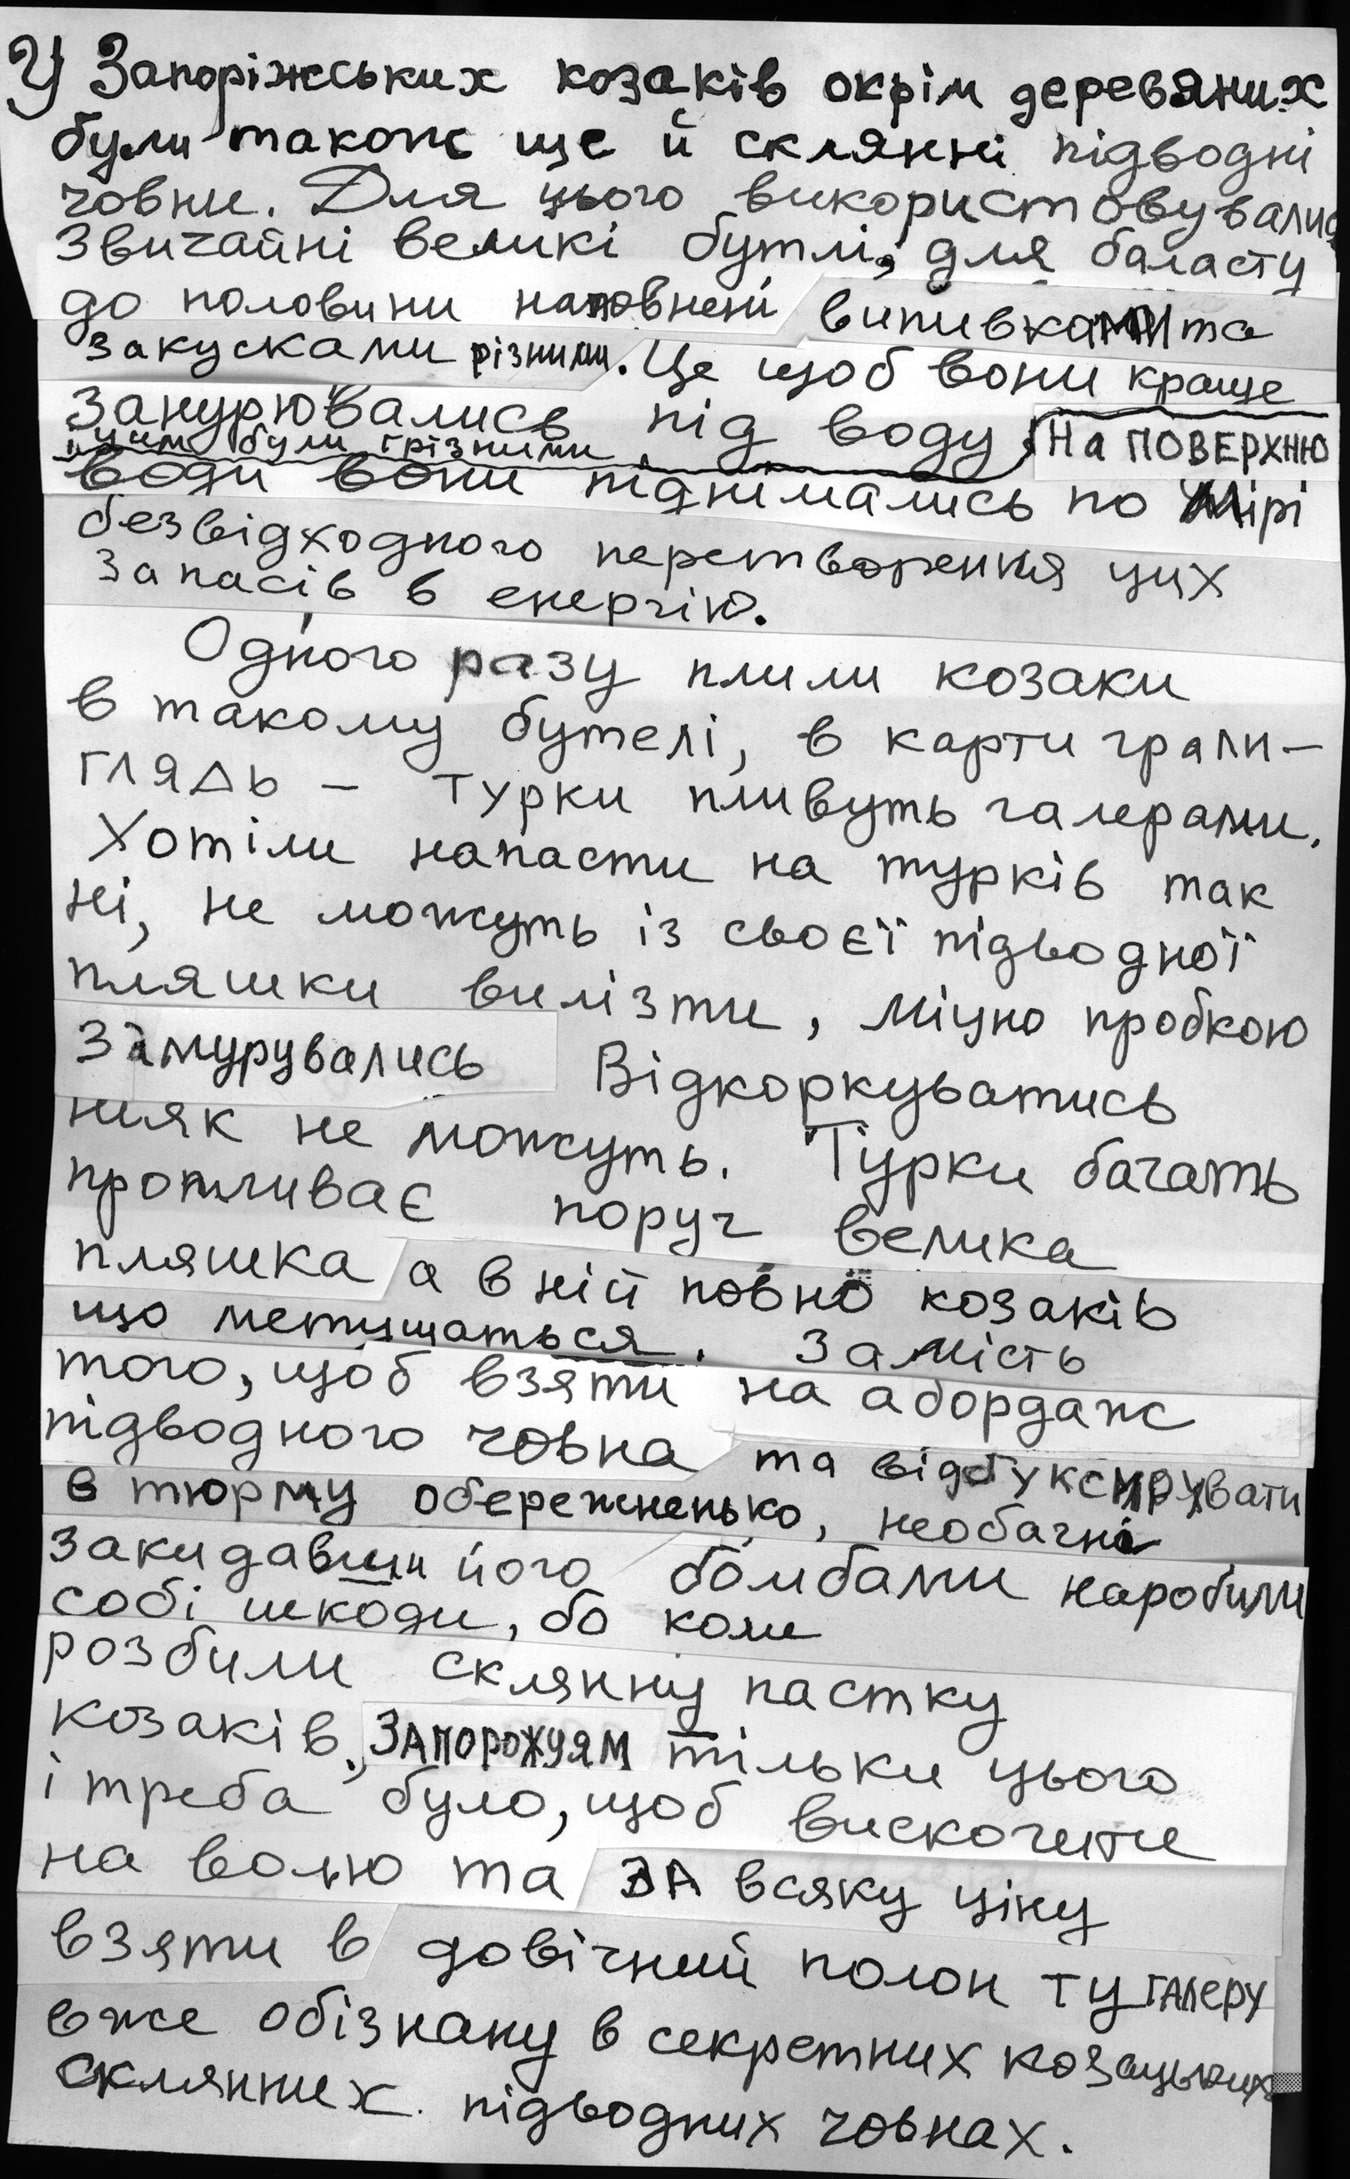 У Запоріжських козаків окрім деревяних
були також ще й склянні підводні
човни. Для цього використовувались
звичайні великі бутлі, для баласту
до половини наповнені випивками та
закусками різними. Це щоб вони краще
занурювались під воду
і цим були грізними. На поверхню
води вони піднімались по мірі
безвідходного перетворення цих
запасів в енергію.
Одного разу плили козаки
в такому бутелі, в карти грали -
глядь - турки пливуть галерами.
Хотіли напасти на турків так
ні, не можуть із своєї підводної
пляшки вилізти, міцно пробкою
замурувались Відкоркуватись
ніяк не можуть. Турки бачать
пропливає поруч велика
пляшка а в ній повно козаків
що метушаться. Замість
того, щоб взяти на абордаж
підводного човна та відбуксирувати
в тюрму обережненько, необачні
закидавши його бомбами наробили
собі шкоди, бо коли
розбили склянну пастку
козаків, запорожцям тільки цього
і треба було, щоб вискочити
на волю та за всяку ціну
взяти в довічний полон ту галеру
вже обізнану в секретних козацьких
склянних підводних човнах.